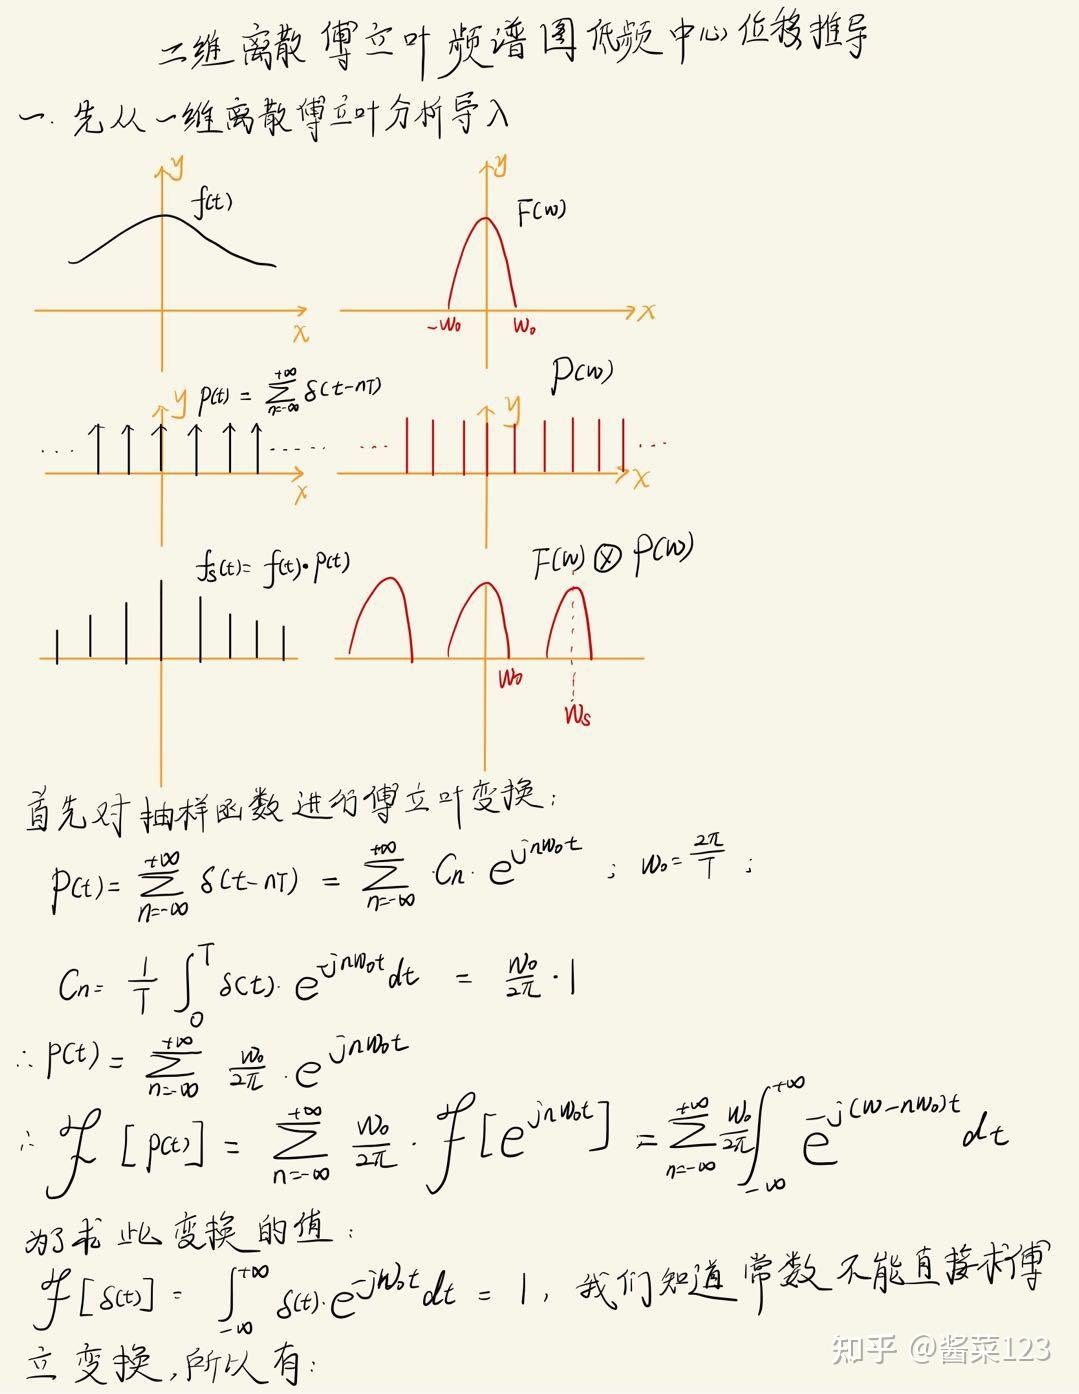 二维离散傅立叶频谱图低频中心位移推导
一. 先从一维离散傅立叶分析导入
y f(t) x
y F(w) -w₀ w₀ x
y p(t) = ∑_{n=-∞}^{+∞} δ(t-nT) ... ...... x
P(w) y ... ... x
fs(t) = f(t)·p(t)
F(w) ⊗ P(w) w₀ ws
首先对抽样函数进行傅立叶变换:
p(t) = ∑_{n=-∞}^{+∞} δ(t-nT) = ∑_{n=-∞}^{+∞} Cn· e^{jnw₀t} ; w₀ = 2π/T ;
Cn = 1/T ∫_0^T δ(t)· e^{-jnw₀t} dt = w₀/2π · 1
∴ p(t) = ∑_{n=-∞}^{+∞} w₀/2π · e^{jnw₀t}
∴ ℱ[p(t)] = ∑_{n=-∞}^{+∞} w₀/2π · ℱ[e^{jnw₀t}] = ∑_{n=-∞}^{+∞} w₀/2π ∫_{-∞}^{+∞} e^{-j(w-nw₀)t} dt
为了求此变换的值:
ℱ[δ(t)] = ∫_{-∞}^{+∞} δ(t)· e^{-jw₀t} dt = 1, 我们知道常数不能直接求傅
立变换,所以有:
知乎 @酱菜123